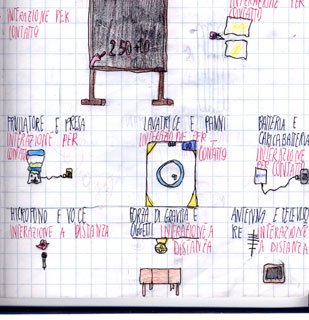 INTERAZIONE PER
CONTATTO
INTERAZIONE PER
CONTATTO
250+10
FRULLATORE E PRESA
INTERAZIONE PER
CONTATTO
LAVATRICE E PANNI
INTERAZIONE PER
CONTATTO
BATTERIA E
CARICABATTERIA
INTERAZIONE
PER CONTATTO
MICROFONO E VOCE
INTERAZIONE A DISTANZA
FORZA DI GRAVITÀ E
OGGETTI INTERAZIONE A
DISTANZA
ANTENNA E TELEVISO
RE INTERAZIONE
A DISTANZA